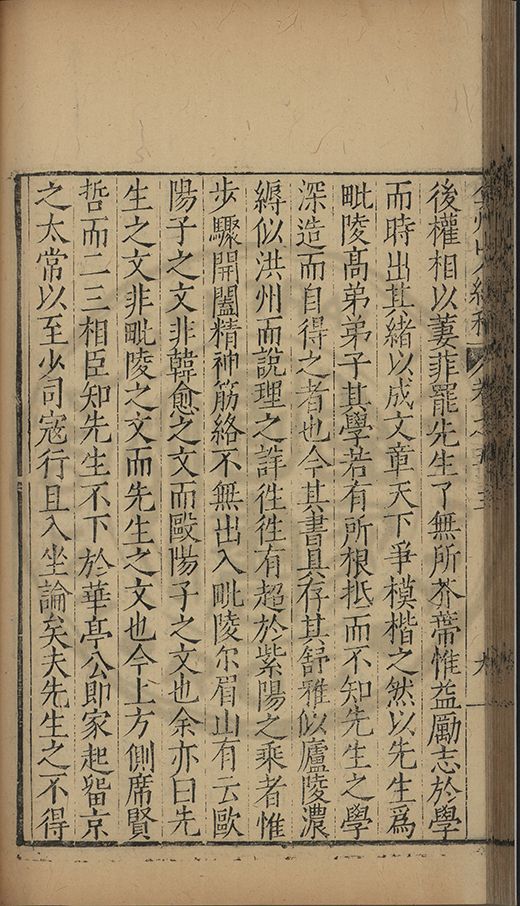 弇州山人續稿 卷之五十三 九
後權相以萋菲罷先生了無所芥蔕惟益勵志於學
而時出其緒以成文章天下爭模楷之然以先生爲
毗陵高弟弟子其學若有所根抵而不知先生之學
深造而自得之者也今其書具存其舒雅似廬陵濃
縟似洪州而說理之詳徃徃有超於紫陽之乘者惟
步驟開闔精神筋絡不無出入毗陵尔眉山有云歐
陽子之文非韓愈之文而歐陽子之文也余亦曰先
生之文非毗陵之文而先生之文也今上方側席賢
哲而二三相臣知先生不下於華亭公卽家起留京
之太常以至少司寇行且入坐論矣夫先生之不得